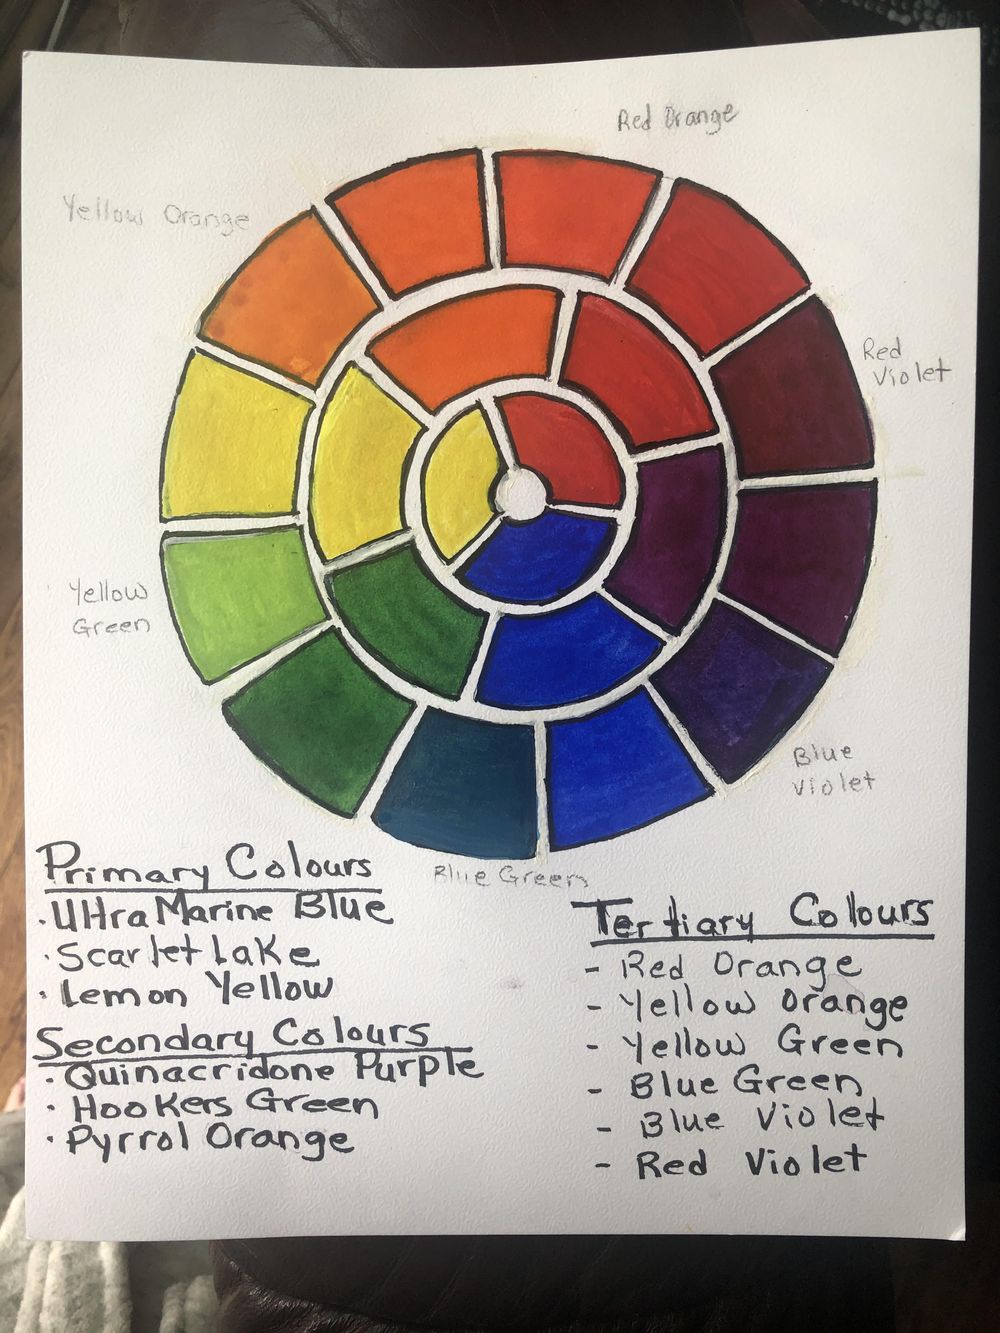 Red Orange
Yellow Orange
Red
Violet
Yellow
Green
Blue
Violet
Blue Green
Primary Colours
· Ultra Marine Blue
· Scarlet Lake
· Lemon Yellow
Secondary Colours
· Quinacridone Purple
· Hookers Green
· Pyrrol Orange
Tertiary Colours
- Red Orange
- Yellow Orange
- Yellow Green
- Blue Green
- Blue Violet
- Red Violet